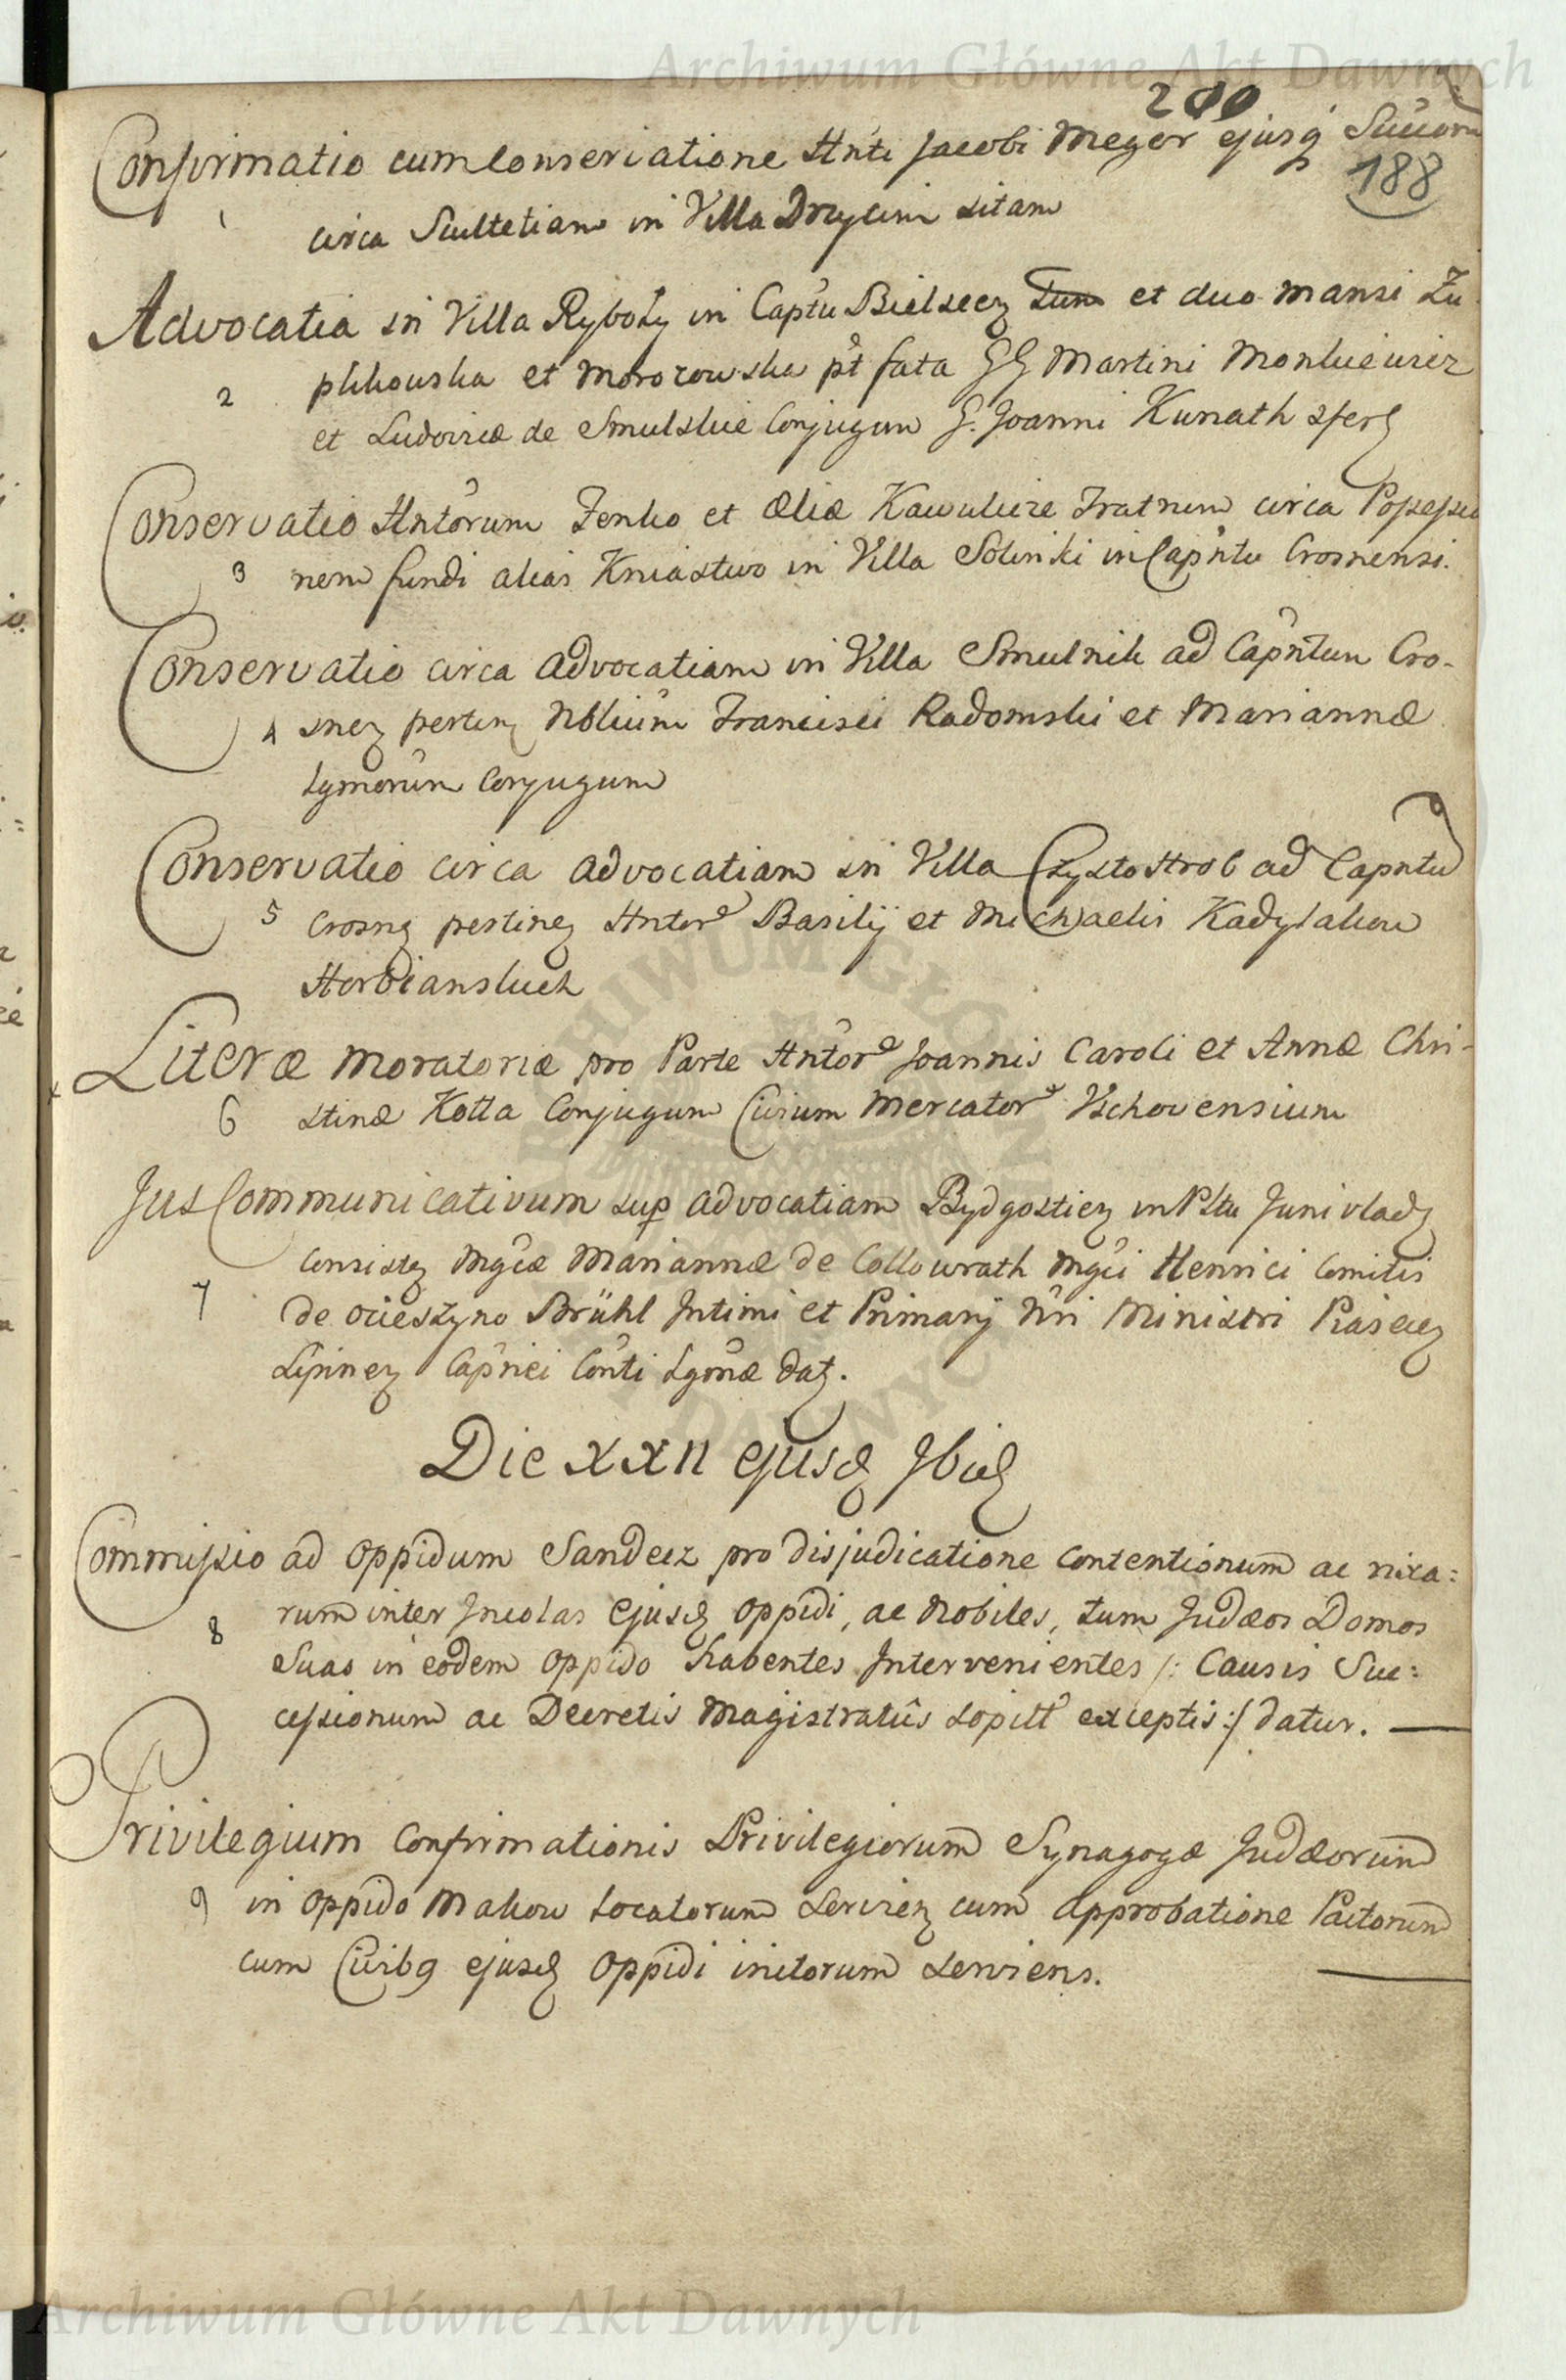 Archiwum Główne Akt Dawnych
200
Confirmatio cum Conservatione Hnti Jacobi Meger ejusq Succorum
188
1 circa Scultetiam in Villa Drzycim sitam
Advocatia in Villa Ryboły in Captu Bielscen et duo Mansi Zu
2 phkouska et Morozowska pt fata GG Martini Monkiewicz
et Ludovicæ de Smulskie Conjugum G. Joanni Kunath sfer
Conservatio Hntorum Fenko et Æliæ Kawulicze Fratrum circa Possessio
3 nem fundi alias Kniastwo in Villa Solinki in Capntu Crosnensi.
Conservatio circa Advocatiam in Villa Smulnik ad Capntum Cro-
4 snen pertin Nblium Francisci Radomski et Mariannæ
Lgmorum Conjugum
Conservatio circa Advocatiam in Villa Czystohorb ad Capntu
5 Crosn pertinen Hntor Basilij et Michaelis Kadylakow
Horbianskich
Literæ Moratoriæ pro Parte Hntor Joannis Caroli et Annæ Chri-
6 stinæ Kotta Conjugum Civium Mercator Vschovensium
Jus Communicativum sup Advocatiam Bydgostien in Pltu Junivladi
7 consisten Mgcæ Mariannæ de Collowrath Mgci Henrici Comitis
de Ocieszyno Brühl Intimi et Primarij Nri Ministri Piasecen
Lipinen Capnei Conti Lgmæ dat.
Die XXII ejusd Ibid
Commissio ad Oppidum Sandecz pro disjudicatione contentionum ac rixa=
8 rum inter Incolas ejusd Oppidi, ac Nobiles, tum Judæos Domos
Suas in eodem Oppido habentes Intervenientes /: Causis Suc=
cessionum ac Decretis Magistratûs sopitt exceptis :/ datur.
Privilegium Confirmationis Privilegiorum Synagogæ Judæorum
9 in Oppido Makow Locatorum servien cum Approbatione Pactorum
cum Civib9 ejusd Oppidi initorum serviens.
Archiwum Główne Akt Dawnych